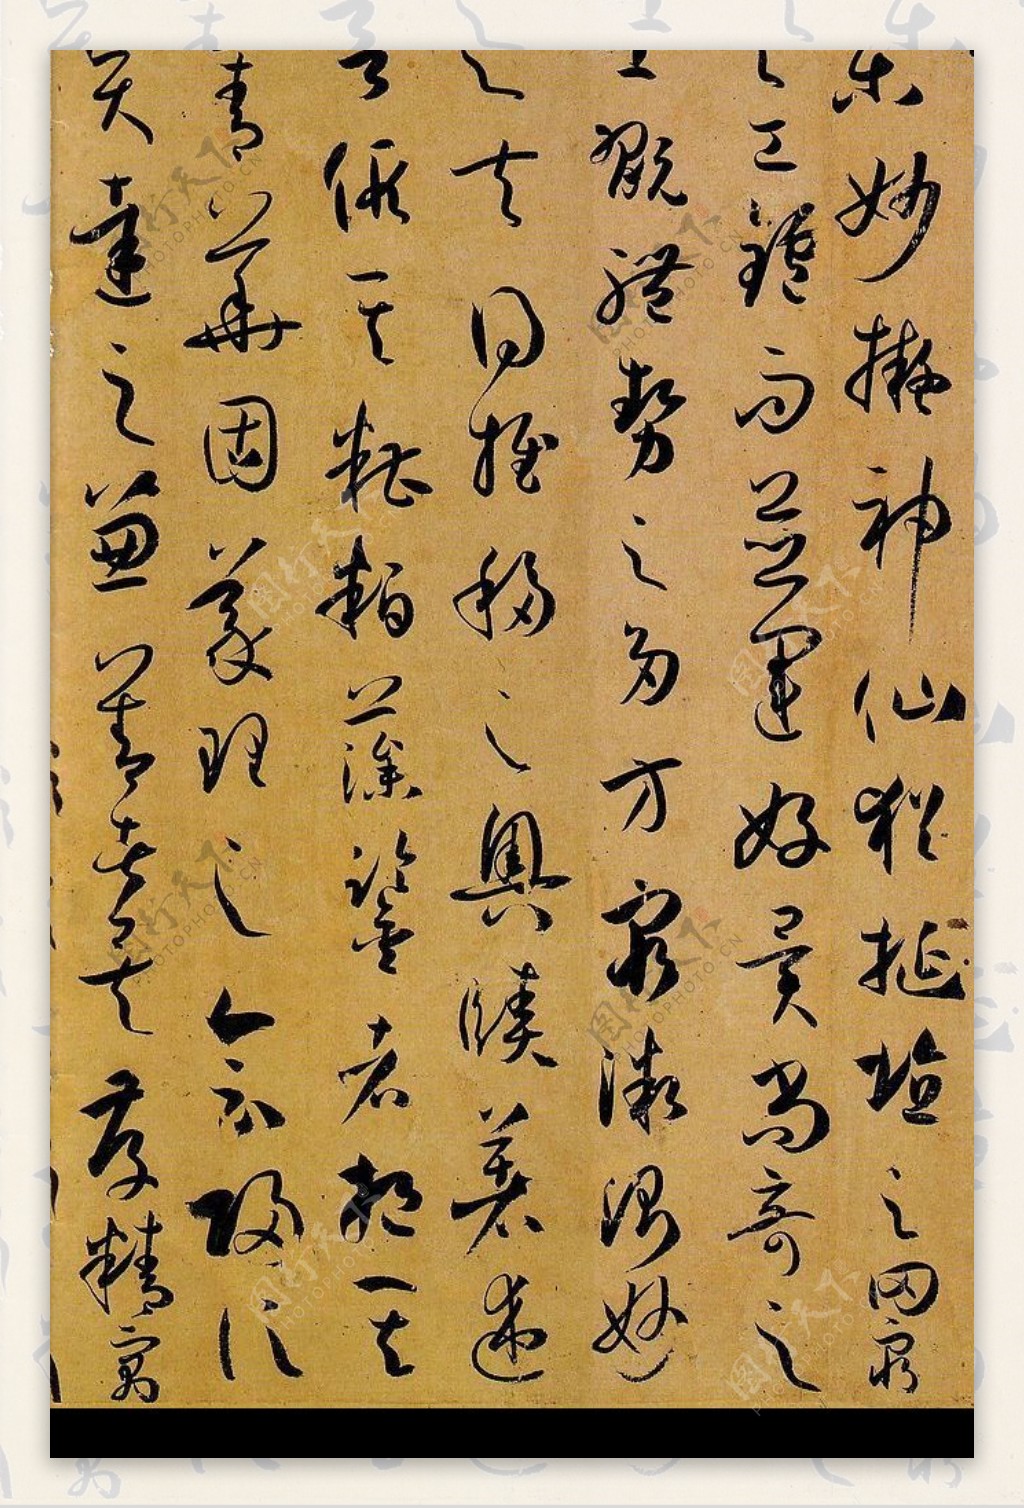 樂妙擬神仙猶埏埴之罔窮
與工鑪而並運好異尚奇之
士翫體勢之多方窮微測妙
之夫得推移之奧賾著述
者假其糟粕藻鑒者挹其
菁華固義理之會歸信
賢達之兼善者矣存精寓
图行天下 PHOTOPHOTO.CN